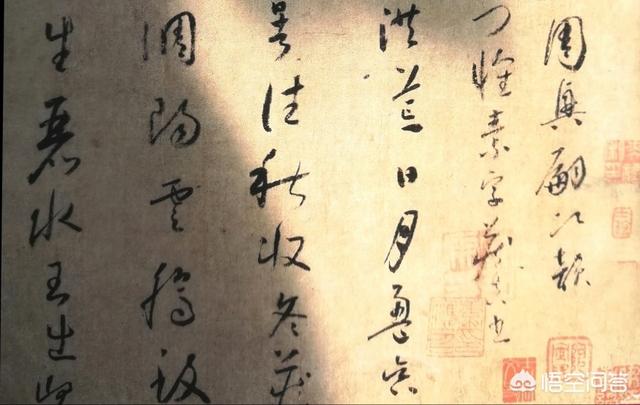 周興嗣次韻
门懷素字藏真书
洪荒日月盈昃
暑往秋收冬藏
調陽雲騰致
生麗水玉出崑
悟空问答